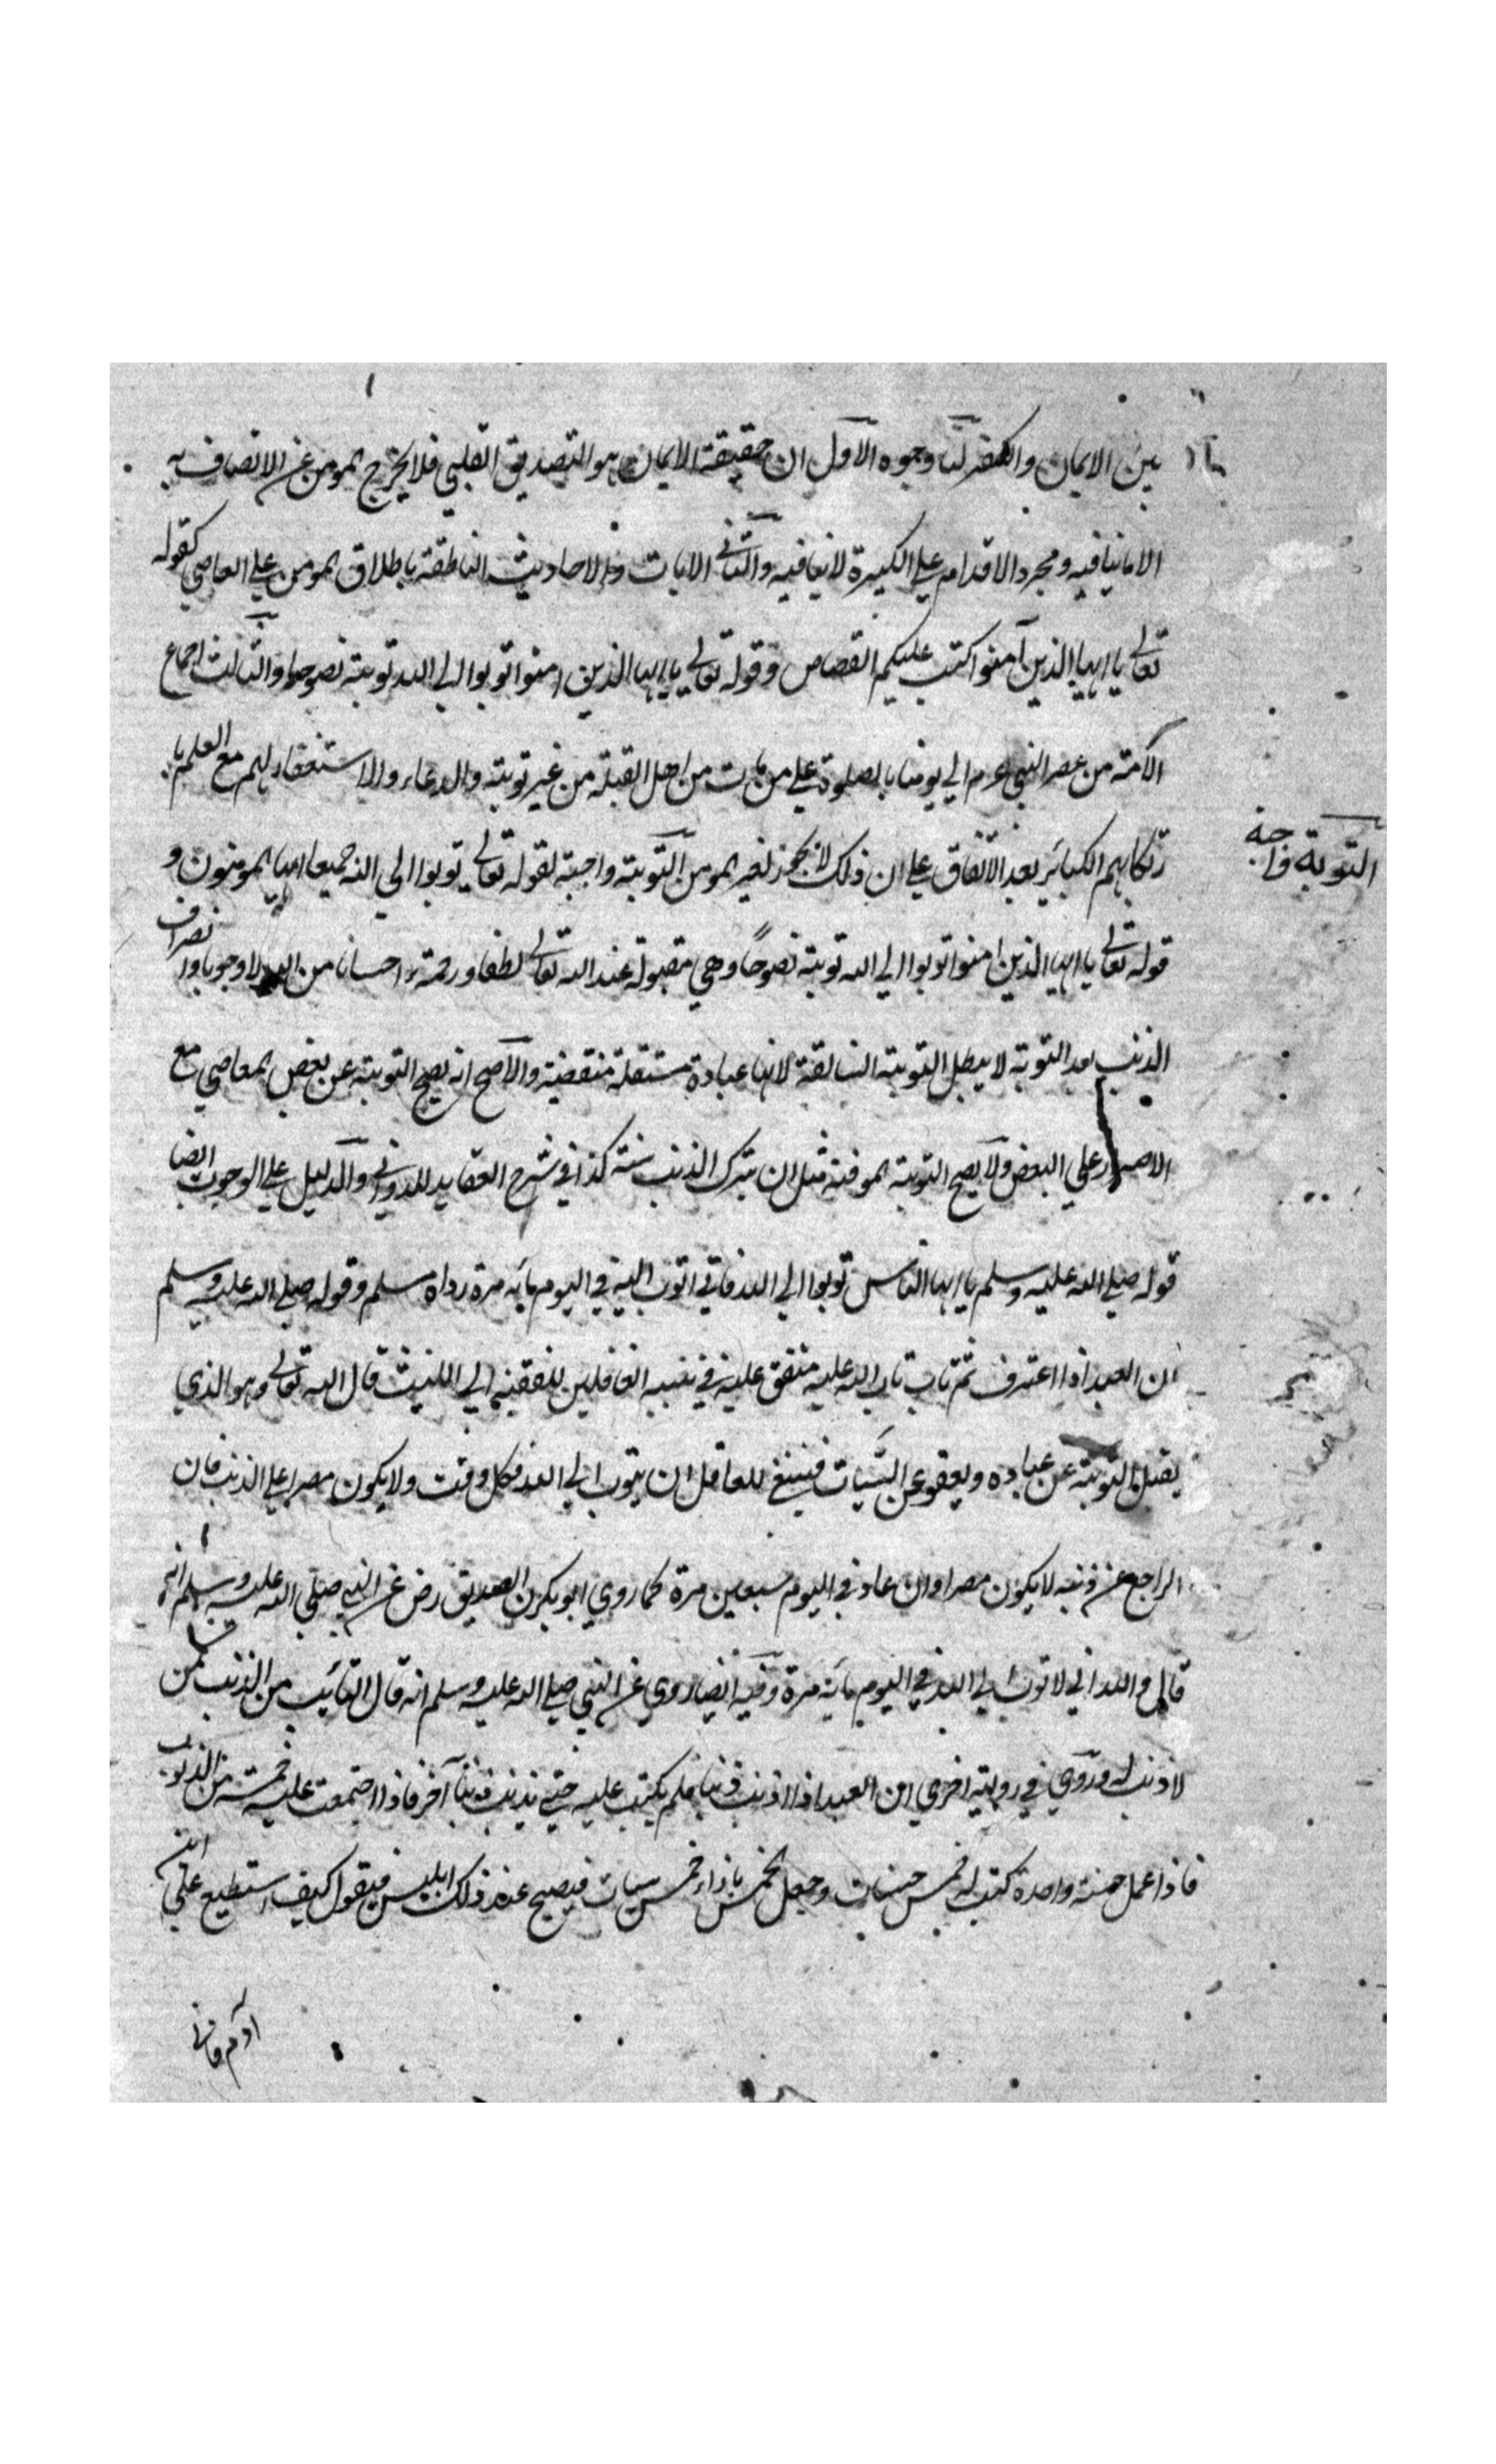 بين الايمان والكفر لنا وجوه الاول ان حقيقة الايمان هو التصديق القلبي فلا يخرج المومن عن الاتصاف به
الا ما ينافيه ومجرد الاقدام علي الكبيرة لا ينافيه والثاني الايات والاحاديث الناطقة باطلاق المومن علي العاصي كقوله
تعالي يا ايها الذين آمنوا كتب عليكم القصاص وقوله تعالي يا ايها الذين امنوا توبوا الي الله توبة نصوحا والثالث اجماع
الامة من عصر النبي عم الي يومنا بالصلوة علي من مات من اهل القبلة من غير توبة والدعاء والاستغفار لهم مع العلم با
رتكابهم الكبائر بعد الاتفاق علي ان ذلك لا يجوز لغير المومن التوبة واجبة لقوله تعالي توبوا الي الله جميعا ايها المومنون و
التوبة واجبة
قوله تعالي يا ايها الذين امنوا توبوا الي الله توبة نصوحًا وهي مقبولة عند الله تعالي لطفا ورحمة واحسانا من الله لا وجوبا
الذنب بعد التوبة لا يبطل التوبة السابقة لانها عبادة مستقلة منقضية والاصح انه يصح التوبة عن بعض المعاصي مع
الاصرار علي البعض ولا يصح التوبة الموقتة مثل ان يترك الذنب سنة كذا في شرح العقايد للدواني والدليل علي الوجوب ايضا
قوله صلي الله عليه وسلم يا ايها الناس توبوا الي الله فاني اتوب اليه في اليوم مائه مرة رواه مسلم وقوله صلي الله عليه وسلم
ان العبد اذا اعترف ثم تاب تاب الله عليه متفق عليه في تنبيه الغافلين للفقيه ابي الليث قال الله تعالي وهو الذي
يقبل التوبة عن عباده ويعفو عن السيات فينبغي للعاقل ان يتوب الي الله في كل وقت ولا يكون مصرا علي الذنب فان
الراجع عن ذنبه لا يكون مصرا وان عاد في اليوم سبعين مرة كما روي ابو بكر الصديق رض عن النبي صلي الله عليه وسلم انه
قال والله اني لاتوب الي الله في اليوم مائة مرة وفيه ايضا روي عن النبي صلي الله عليه وسلم انه قال التائب من الذنب كمن
لا ذنب له وروي في رواية اخري ان العبد اذا اذنب ذنبا فلم يكتب عليه حتي يذنب ذنبا آخر فاذا اجتمعت عليه خمسة من الذنوب
فاذا عمل حسنة واحدة كتب له خمس حسنات وجعل الخمس بازاء خمس سيات فيصيح عند ذلك ابليس فيقول كيف استطيع علي ابن
آدم فاني